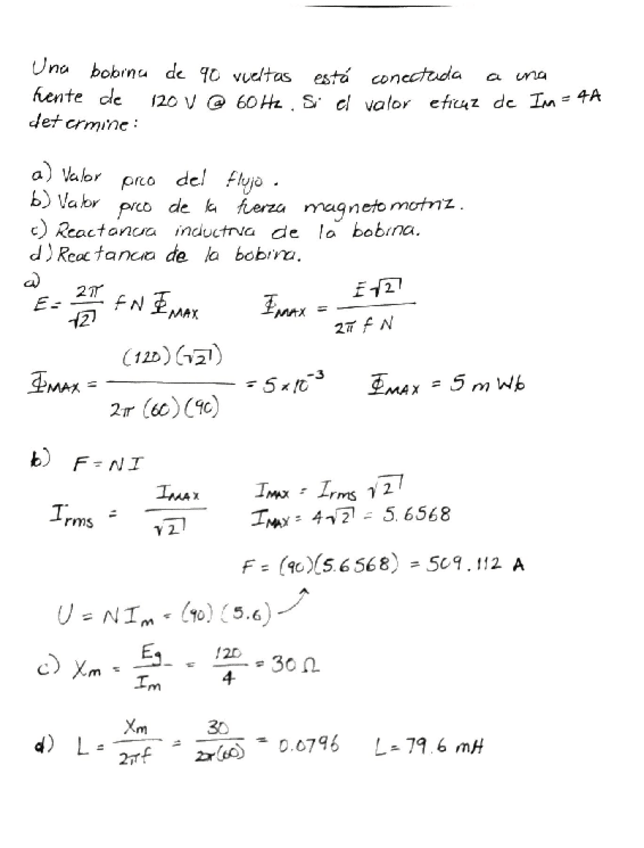 Una bobina de 90 vueltas está conectada a una
fuente de 120 V @ 60 Hz. Si el valor eficaz de Iм = 4A
determine:
a) Valor pico del flujo.
b) Valor pico de la fuerza magnetomotriz.
c) Reactancia inductiva de la bobina.
d) Reactancia de la bobina.
a)
E = 2π/√2 f N ΦMAX    ΦMAX = E√2 / 2π f N
ΦMAX = (120)(√2) / 2π (60)(90) = 5 × 10⁻³    ΦMAX = 5 m Wb
b) F = NI
Irms = IMAX / √2    IMAX = Irms √2
IMAX = 4√2 = 5.6568
F = (90)(5.6568) = 509.112 A
U = N Im = (90)(5.6)
c) Xm = Eg / Im = 120 / 4 = 30 Ω
d) L = Xm / 2πf = 30 / 2π(60) = 0.0796    L = 79.6 mH